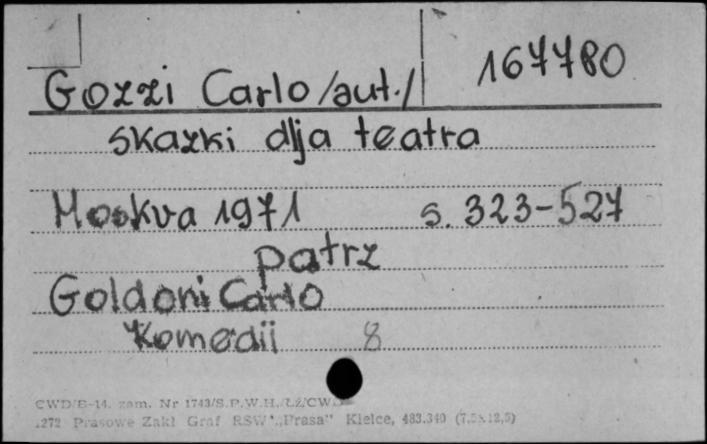 Gozzi Carlo /aut./ 167780
Skazki dlja teatra
Moskva 1971 s. 323-527
patrz
Goldoni Carlo
Komedii 8
CWD/E-14. zam. Nr 1743/S.P.W.H./Łż/CWD
.272 Prasowe Zakł Graf RSW "Prasa" Kielce, 483.340 (7.5x12,5)